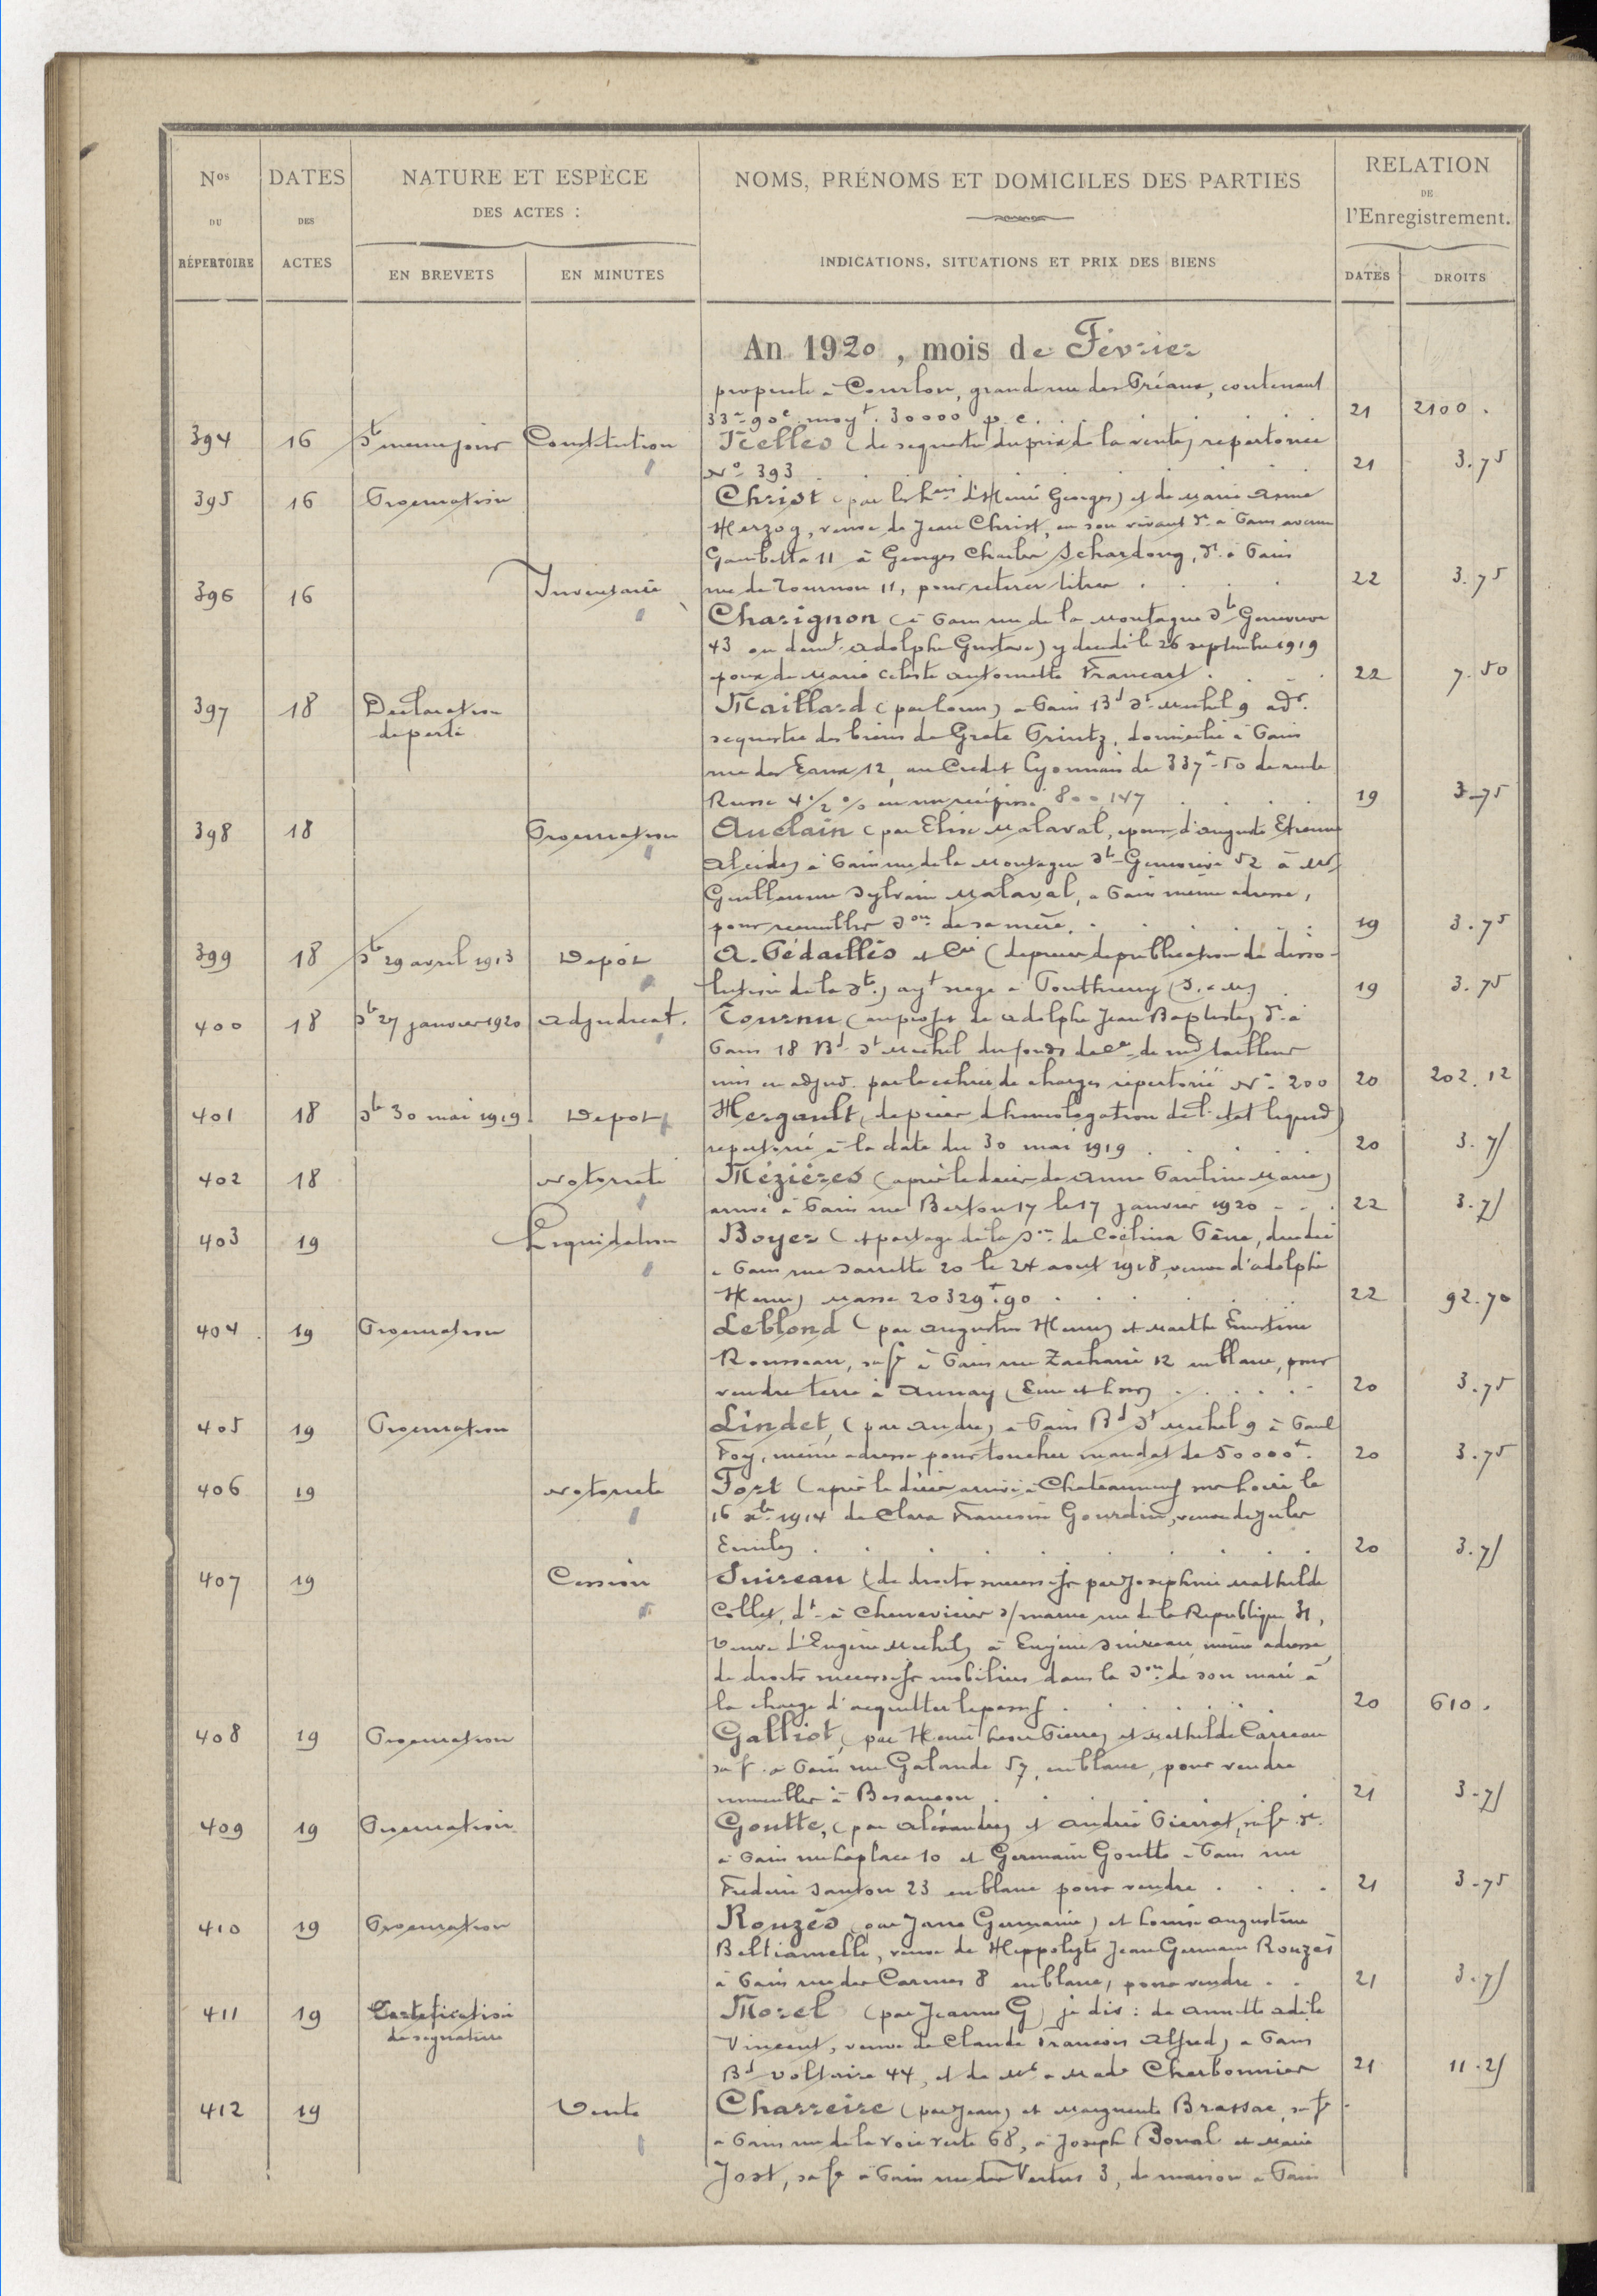 Nos DU RÉPERTOIRE
DATES DES ACTES
NATURE ET ESPÈCE DES ACTES :
EN BREVETS
EN MINUTES
NOMS, PRÉNOMS ET DOMICILES DES PARTIES
INDICATIONS, SITUATIONS ET PRIX DES BIENS
RELATION DE l'Enregistrement.
DATES
DROITS
An 1920, mois de Février
propriété à Courlon, grande rue des Préaux, contenant
33a 90c moyt. 30000 p. c. 21 2100.
394 16 St meme jour Constitution Tcelles (de sequestre du prix de la vente) repertoriee
No 393 21 3.75
395 16 Procuration Christ (par les hers d'Henri Georges) et de Marie Anne
Herzog, veuve de Jean Christ, en son vivant dt à Paris avenue
Gambetta 11 à Georges Charles Schardong, dt à Paris
rue de Tournon 11, pour retirer titres 22 3.75
396 16 Inventaire Charignon (à Paris rue de la Montagne Ste Genevieve
43 ou demt Adolphe Gustave) y décédé le 26 septembre 1919
époux de Marie Celeste Antoinette Francart 22 7.50
397 18 Declaration de perte Maillard (par Louis) à Paris Bd St Michel 9 adr.
sequestre des biens de Grete Printz, domiciliée à Paris
rue des Eaux 12, au Credit Lyonnais de 337f.50 de rente
Russe 4 1/2 % en un récépissé 800,147 19 3.75
398 18 Procuration Auclain (par Elise Malaval, épouse d'Auguste Etienne
Alcide) à Paris rue de la Montagne Ste Genevieve 52 à Mr
Guillaume Sylvain Malaval, à Paris même adresse,
pour recueillir son de sa mère. 19 3.75
399 18 St 29 avril 1913 Depôt A. Pédaillés et Cie (de pieces de publication de disso-
lution de la Sté) ayt siege à Ponthierry (S. et M) 19 3.75
400 18 St 27 janvier 1920 Adjudicat. Tournu (au profit de Adolphe Jean Baptiste) dt à
Paris 18 Bd St Michel du fonds de Ce de md tailleur
mis en adjud. par le cahier de charges repertorié No 200 20 202.12
401 18 St 30 mai 1919 Depot Hergault (de pièces d'homologation de l'état liquid)
repertorié à la date du 30 mai 1919 20 3.75
402 18 Notoriété Mézières (après le décès de Anne Pauline Marie)
arrivé à Paris rue Berton 17 le 17 janvier 1920 22 3.75
403 19 Liquidation Boyer (et partage de la son de Coelina Père, décédée
à Paris rue Sarrette 20 le 24 aout 1918, veuve d'Adolphe
Henri) Masse 20329f.90 22 92.70
404 19 Procuration Leblond (par Augustin Henri) et Marthe Ernestine
Rousseau, sa fe à Paris rue Zacharie 12 en blanc, pour
vendre terre à Aunay (Eure et Loir) 20 3.75
405 19 Procuration Lindet, (par André) à Paris Bd St Michel 9 à Paul
Foy, même adresse pour toucher mandat de 50000f. 20 3.75
406 19 Notoriété Fort (après le décès arrivé à Chateauneuf sur Loire le
16 Xbre 1914 de Clara Francoise Gourdin, veuve de Jules
Emile) 20 3.75
407 19 Cession Suireau (de droits successifs par Josephine Mathilde
Collet, dt à Chenevieres s/ marne rue de la Republique 31,
veuve d'Eugène Michel) à Eugène Suireau, même adresse,
de droits successifs mobiliers dans la son de son mari à
la charge d'acquitter le passif 20 610.
408 19 Procuration Galliot, (par Henri Leon Pierre) et Mathilde Carreau
sa fe à Paris rue Galande 57, en blanc, pour vendre
immeubles à Besançon 21 3.75
409 19 Procuration Goutte, (par Alexandre) et Andrée Pierrat, sa fe dt
à Paris rue Laplace 10 et Germain Goutte à Paris rue
Frederic Sauton 23 en blanc pour vendre 21 3.75
410 19 Procuration Rouzès (par Jane Germaine) et Louise Augustine
Beltiamelle, veuve de Hippolyte Jean Germain Rouzès
à Paris rue des Carmes 8 en blanc, pour vendre 21 3.75
411 19 Certification de signature Morel (par Jeanne G) je dis : de Annette Adèle
Vincent, veuve de Claude Francois Alfred) à Paris
Bd Voltaire 44, et de Mr et Made Charbonnier 21 11.25
412 19 Vente Charreire (par Jean) et Marguerite Brassac, sa fe
à Paris rue de la Voie verte 68, à Joseph Bonal et Marie
Jost, sa fe à Paris rue des Vertus 3, de maison à Paris